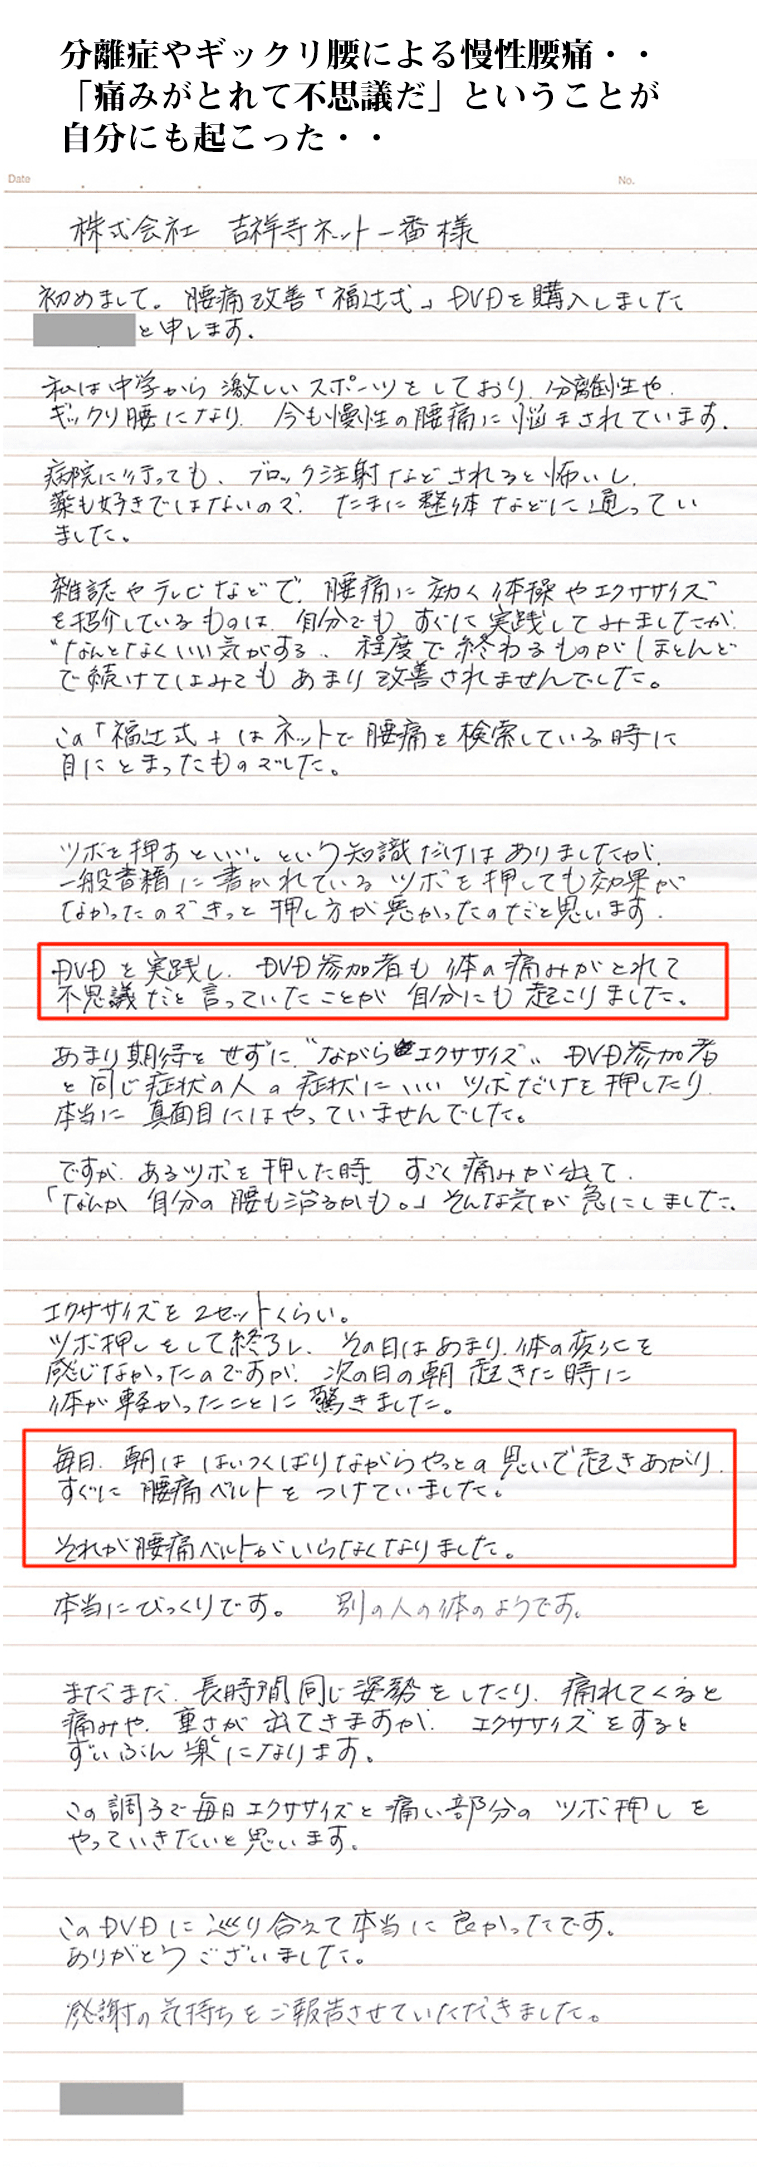 分離症やギックリ腰による慢性腰痛・・
「痛みがとれて不思議だ」ということが
自分にも起こった・・
Date
No.
株式会社 吉祥寺ネット一番様
初めまして。腰痛改善「福辻式」DVDを購入しました
と申します。
私は中学から激しいスポーツをしており、分離症や
ギックリ腰になり、今も慢性の腰痛に悩まされています。
病院に行っても、ブロック注射などされると怖いし、
薬も好きではないので、たまに整体などに通ってい
ました。
雑誌やテレビなどで、腰痛に効く体操やエクササイズ
を紹介しているものは、自分でもすぐに実践してみましたが、
"なんとなくいい気がする"程度で終わるものがほとんど
で続けてはみてもあまり改善されませんでした。
この「福辻式」はネットで腰痛を検索している時に
目にとまったものでした。
ツボを押すといい。という知識だけはありましたが、
一般書籍に書かれているツボを押しても効果が
なかったのできっと押し方が悪かったのだと思います。
DVDを実践し、DVD参加者も体の痛みがとれて
不思議だと言っていたことが自分にも起こりました。
あまり期待をせずに、"ながらエクササイズ" DVD参加者
と同じ症状の人の症状にいいツボだけを押したり、
本当に真面目にはやっていませんでした。
ですが、あるツボを押した時、すごく痛みが出て、
「なんか自分の腰も治るかも。」そんな気が急にしました。
エクササイズを2セットくらい。
ツボ押しをして終了し、その日はあまり、体の変化を
感じなかったのですが、次の日の朝起きた時に
体が軽かったことに驚きました。
毎日、朝ははいつくばりながらやっとの思いで起きあがり、
すぐに腰痛ベルトをつけていました。
それが腰痛ベルトがいらなくなりました。
本当にびっくりです。 別の人の体のようです。
まだまだ、長時間同じ姿勢をしたり、痛れてくると
痛みや、重さが出てきますが、エクササイズをすると
ずいぶん楽になります。
この調子で毎日エクササイズと痛い部分のツボ押しを
やっていきたいと思います。
このDVDに巡り合えて本当に良かったです。
ありがとうございました。
感謝の気持ちをご報告させていただきました。